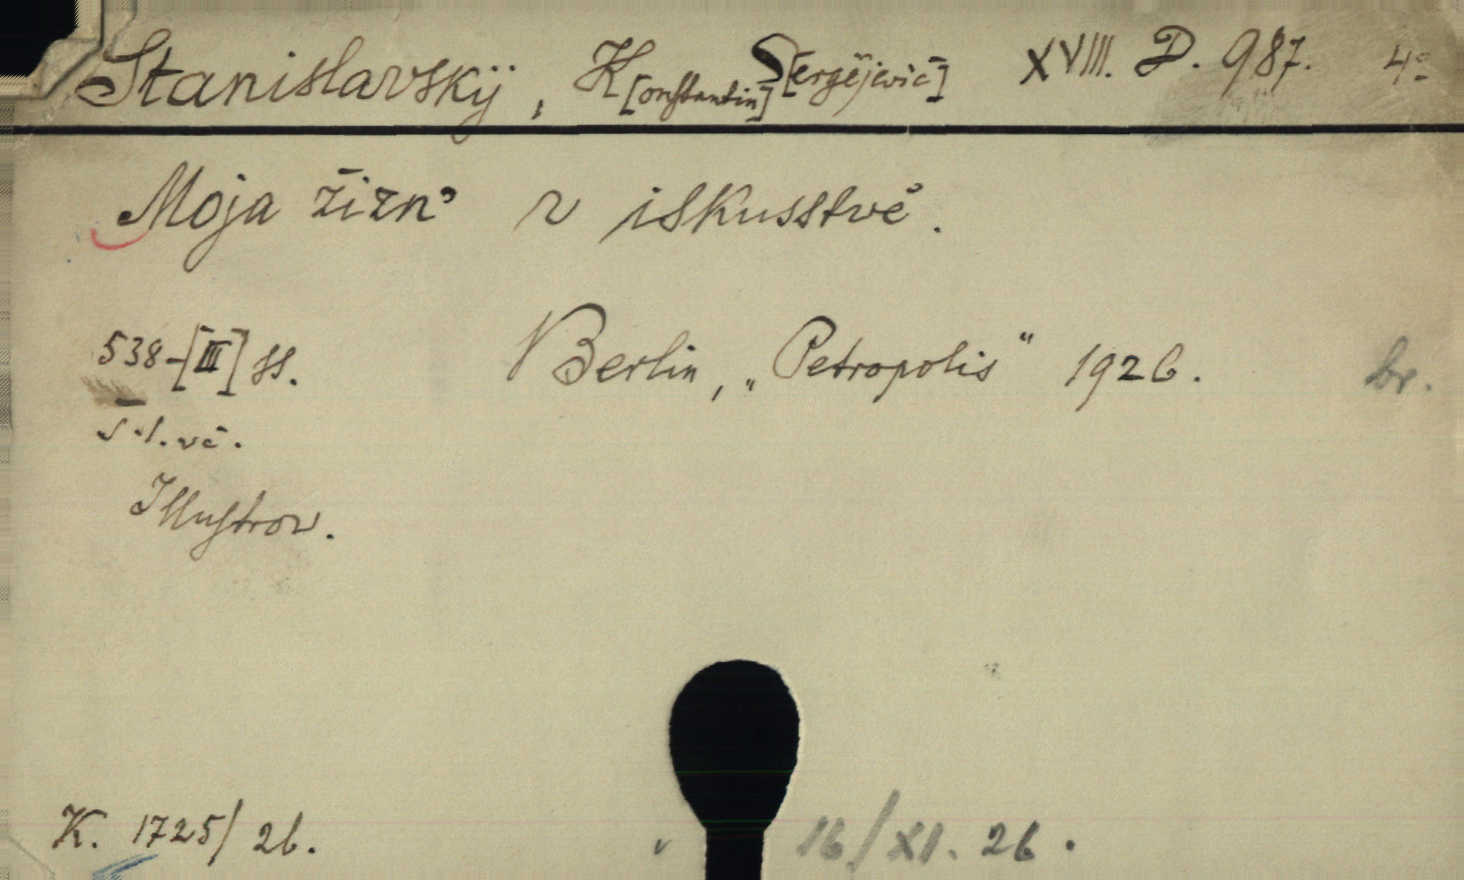 Stanislavskij, K[onstantin] S[ergějevič] XVIII. D. 987. 4°
Moja žizn' v iskusstvě.
538-[III] ss. Berlin, „Petropolis" 1926. br.
Illustrov.
K. 1725/26. 16/XI. 26.